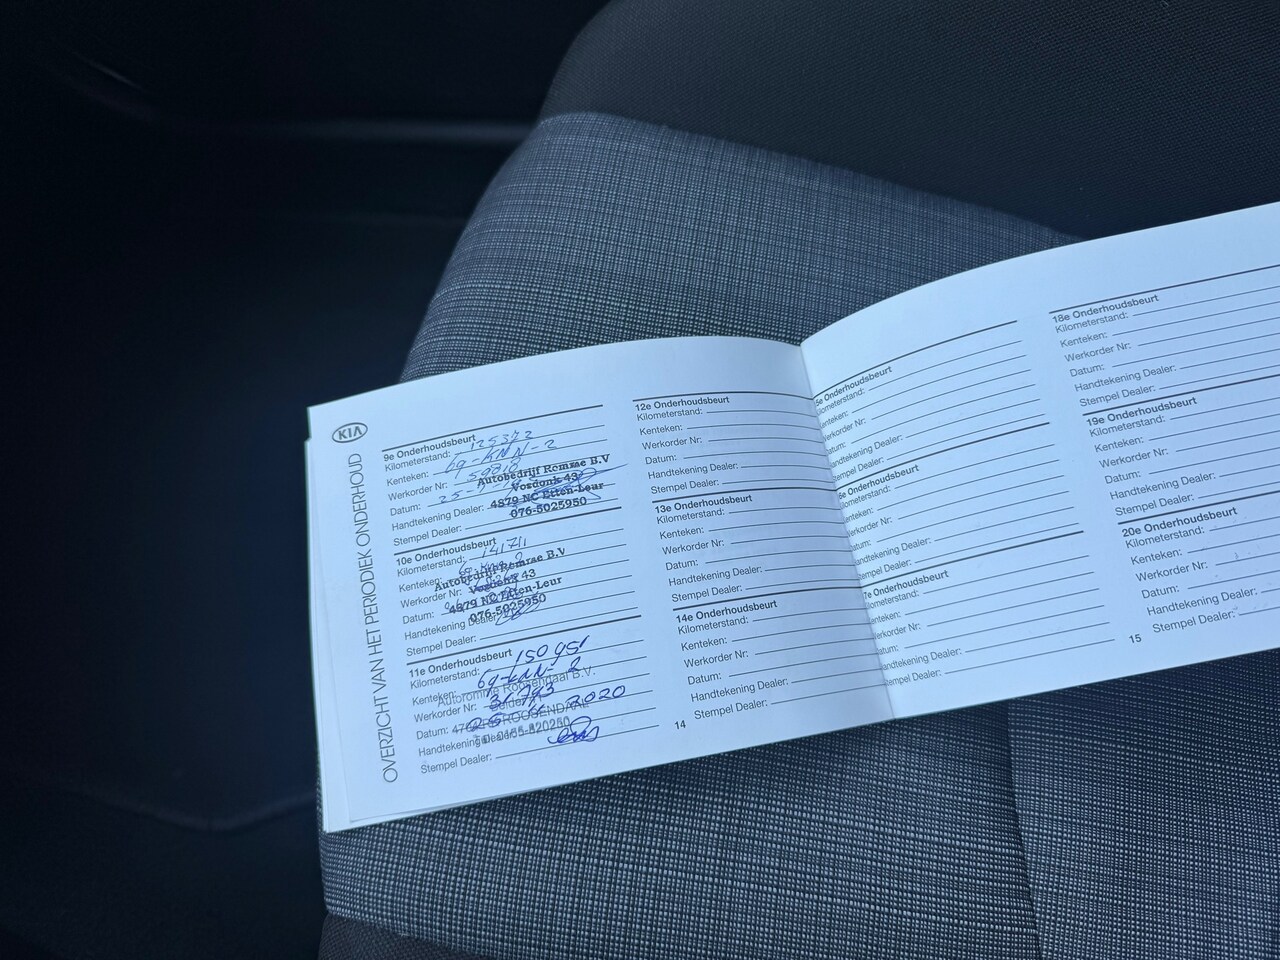 KIA
OVERZICHT VAN HET PERIODIEK ONDERHOUD
9e Onderhoudsbeurt
Kilometerstand: 125372
Kenteken: 69-KNN-2
Werkorder Nr: 59810
Datum: 25-
Handtekening Dealer:
Stempel Dealer:
Autobedrijf Romrae B.V
Vosdonk 43
4879 NC Etten-Leur
076-5025950
10e Onderhoudsbeurt
Kilometerstand: 141711
Kenteken:
Werkorder Nr:
Datum:
Handtekening Dealer:
Stempel Dealer:
Autobedrijf Romrae B.V
Vosdonk 43
4879 NC Etten-Leur
076-5025950
11e Onderhoudsbeurt
Kilometerstand: 150951
Kenteken: 69-KNN-2
Werkorder Nr: 31793
Datum: 2020
Handtekening Dealer:
Stempel Dealer:
Roosendaal B.V.
ROOSENDAAL
820250
12e Onderhoudsbeurt
Kilometerstand:
Kenteken:
Werkorder Nr:
Datum:
Handtekening Dealer:
Stempel Dealer:
13e Onderhoudsbeurt
Kilometerstand:
Kenteken:
Werkorder Nr:
Datum:
Handtekening Dealer:
Stempel Dealer:
14e Onderhoudsbeurt
Kilometerstand:
Kenteken:
Werkorder Nr:
Datum:
Handtekening Dealer:
Stempel Dealer:
14
5e Onderhoudsbeurt
ilometerstand:
enteken:
erkorder Nr:
atum:
andtekening Dealer:
tempel Dealer:
6e Onderhoudsbeurt
ilometerstand:
enteken:
erkorder Nr:
atum:
andtekening Dealer:
tempel Dealer:
7e Onderhoudsbeurt
ilometerstand:
enteken:
erkorder Nr:
atum:
andtekening Dealer:
tempel Dealer:
18e Onderhoudsbeurt
Kilometerstand:
Kenteken:
Werkorder Nr:
Datum:
Handtekening Dealer:
Stempel Dealer:
19e Onderhoudsbeurt
Kilometerstand:
Kenteken:
Werkorder Nr:
Datum:
Handtekening Dealer:
Stempel Dealer:
20e Onderhoudsbeurt
Kilometerstand:
Kenteken:
Werkorder Nr:
Datum:
Handtekening Dealer:
Stempel Dealer:
15